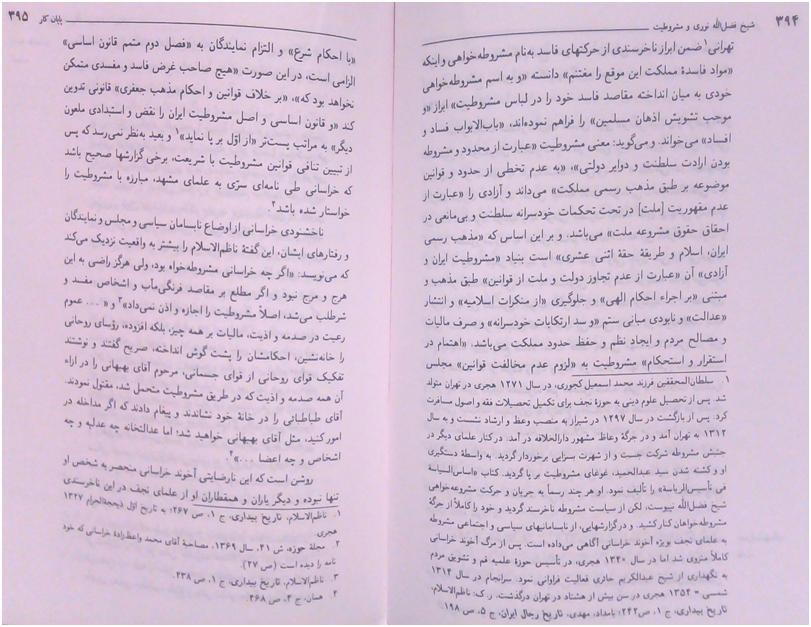 ۳۹۴
شیخ فضل‌الله نوری و مشروطیت
تهرانی۱ ضمن ابراز ناخرسندی از حرکتهای فاسد به‌نام مشروطه‌خواهی و اینکه
«مواد فاسدهٔ مملکت این موقع را مغتنم» دانسته «و به اسم مشروطه‌خواهی
خودی به میان انداخته مقاصد فاسد خود را در لباس مشروطیت» ابراز «و
موجب تشویش اذهان مسلمین» را فراهم نموده‌اند، «باب‌الابواب فساد و
افساد» می‌خواند. و می‌گوید: معنی مشروطیت «عبارت از محدود و مشروطه
بودن ارادت سلطنت و دوایر دولتی»، «به عدم تخطی از حدود و قوانین
موضوعه بر طبق مذهب رسمی مملکت» می‌داند و آزادی را «عبارت از
عدم مقهوریت [ملت] در تحت تحکمات خودسرانه سلطنت و بی‌مانعی در
احقاق حقوق مشروعه ملت» می‌باشد. و بر این اساس که «مذهب رسمی
ایران، اسلام و طریقهٔ حقهٔ اثنی عشری» است بنیاد «مشروطیت ایران و
آزادی» آن «عبارت از عدم تجاوز دولت و ملت از قوانین» طبق مذهب و
مبتنی «بر اجراء احکام الهی» و جلوگیری «از منکرات اسلامیه» و انتشار
«عدالت» و نابودی مبانی ستم «و سد ارتکابات خودسرانه» و صرف مالیات
و مصالح مردم و ایجاد نظم و حفظ حدود مملکت می‌باشد، «اهتمام در
استقرار و استحکام» مشروطیت به «لزوم عدم مخالفت قوانین» مجلس
۱ سلطان‌المحققین فرزند محمد اسمعیل کجوری، در سال ۱۲۷۱ هجری در تهران متولد
شد. پس از تحصیل علوم دینی به حوزهٔ نجف برای تکمیل تحصیلات فقه و اصول مسافرت
کرد. پس از بازگشت در سال ۱۲۹۷ در شیراز به منصب وعظ و ارشاد نشست و به سال
۱۳۱۲ به تهران آمد و در جرگهٔ وعاظ مشهور دارالخلافه در آمد. در کنار علمای دیگر در
جنبش مشروطه شرکت جست و از شهرت بسزایی برخوردار گردید. به واسطهٔ دستگیری
او و کشته شدن سید عبدالحمید، غوغای مشروطیت بر پا گردید. کتاب «اساس‌السیاسة
فی تأسیس‌الریاسة» را تألیف نمود. او هر چند رسماً به جریان و حرکت مشروعه‌خواهی
شیخ فضل‌الله نپیوست، لکن از سیاست مشروطه ناخرسند گردید و خود را کاملاً از جرگهٔ
مشروطه‌خواهان کنار کشید. و در گزارشهایی، از نابسامانیهای سیاسی و اجتماعی مشروطه
به علمای نجف بویژه آخوند خراسانی آگاهی می‌داده است. پس از مرگ آخوند خراسانی
کاملاً منزوی شد اما در سال ۱۳۴۰ هجری، در تأسیس حوزهٔ علمیه قم و تشویق مردم
به نگهداری از شیخ عبدالکریم حائری فعالیت فراوانی نمود. سرانجام در سال ۱۳۱۴
شمسی = ۱۳۵۴ هجری در سن بیش از هشتاد در تهران درگذشت. ر. ک: ناظم‌الاسلام،
تاریخ بیداری، ج ۱، ص ۲۴۲؛ بامداد، مهدی، تاریخ رجال ایران، ج ۵، ص ۱۹۸
پایان کار
۳۹۵
«با احکام شرع» و التزام نمایندگان به «فصل دوم متمم قانون اساسی»
الزامی است، در این صورت «هیچ صاحب غرض فاسد و مفسدی متمکن
نخواهد بود که»، «بر خلاف قوانین و احکام مذهب جعفری» قانونی تدوین
کند «و قانون اساسی و اصل مشروطیت ایران را نقض و استبدادی ملعون
دیگر» به مراتب پست‌تر «از اوّل بر پا نماید»۱ و بعید به‌نظر نمی‌رسد که پس
از تبیین تنافی قوانین مشروطیت با شریعت، برخی گزارشها صحیح باشد
که خراسانی طی نامه‌ای سرّی به علمای مشهد، مبارزه با مشروطیت را
خواستار شده باشد۲.
ناخشنودی خراسانی از اوضاع نابسامان سیاسی و مجلس و نمایندگان
و رفتارهای ایشان، این گفتهٔ ناظم‌الاسلام را بیشتر به واقعیت نزدیک می‌کند
که می‌نویسد: «اگر چه خراسانی مشروطه‌خواه بود، ولی هرگز راضی به این
هرج و مرج نبود و اگر مطلع بر مقاصد فرنگی‌مآب و اشخاص مفسد و
شرطلب می‌شد، اصلاً مشروطیت را اجازه و اذن نمی‌داد»۳ و «... عموم
رعیت در صدمه و اذیت، مالیات بر همه چیز، بلکه افزوده، رؤسای روحانی
را خانه‌نشین، احکامشان را پشت گوش انداخته، صریح گفتند و نوشتند
تفکیک قوای روحانی از قوای جسمانی، مرحوم آقای بهبهانی را در ازاء
آن همه صدمه و اذیت که در طریق مشروطیت متحمل شد، مقتول نمودند.
آقای طباطبائی را در خانهٔ خود نشاندند و پیغام دادند که اگر مداخله در
امور کنید، مثل آقای بهبهانی خواهید شد؛ اما عدالتخانه چه عدلیه و چه
اشخاص و چه اعضا ...»۴.
روشن است که این نارضایتی آخوند خراسانی منحصر به شخص او
تنها نبوده و دیگر یاران و همقطاران او از علمای نجف در این ناخرسندی
۱. ناظم‌الاسلام، تاریخ بیداری، ج ۱، ص ۲۶۷؛ به تاریخ اوّل ذیحجةالحرام ۱۳۲۷
هجری
۲. مجلهٔ حوزه، ش ۴۱، سال ۱۳۶۹. مصاحبهٔ آقای محمد واعظ‌زادهٔ خراسانی که خود
نامه را دیده است (ص ۲۷).
۳. ناظم‌الاسلام، تاریخ بیداری، ج ۱، ص ۲۳۸.
۴. همان، ج ۴، ص ۴۶۸.